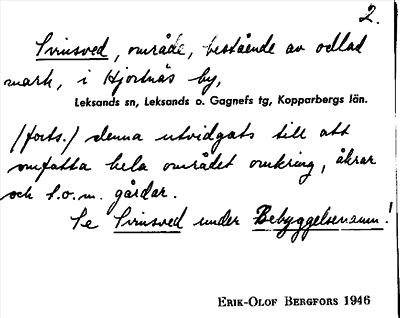 2.
Svinsved, område, bestående av odlad
mark, i Hjortnäs by,
Leksands sn, Leksands o. Gagnefs tg, Kopparbergs län.
/forts./ denna utvidgats till att
omfatta hela området omkring, åkrar
och t.o.m. gårdar.
Se Svinsved under Bebyggelsenamn!
ERIK-OLOF BERGFORS 1946